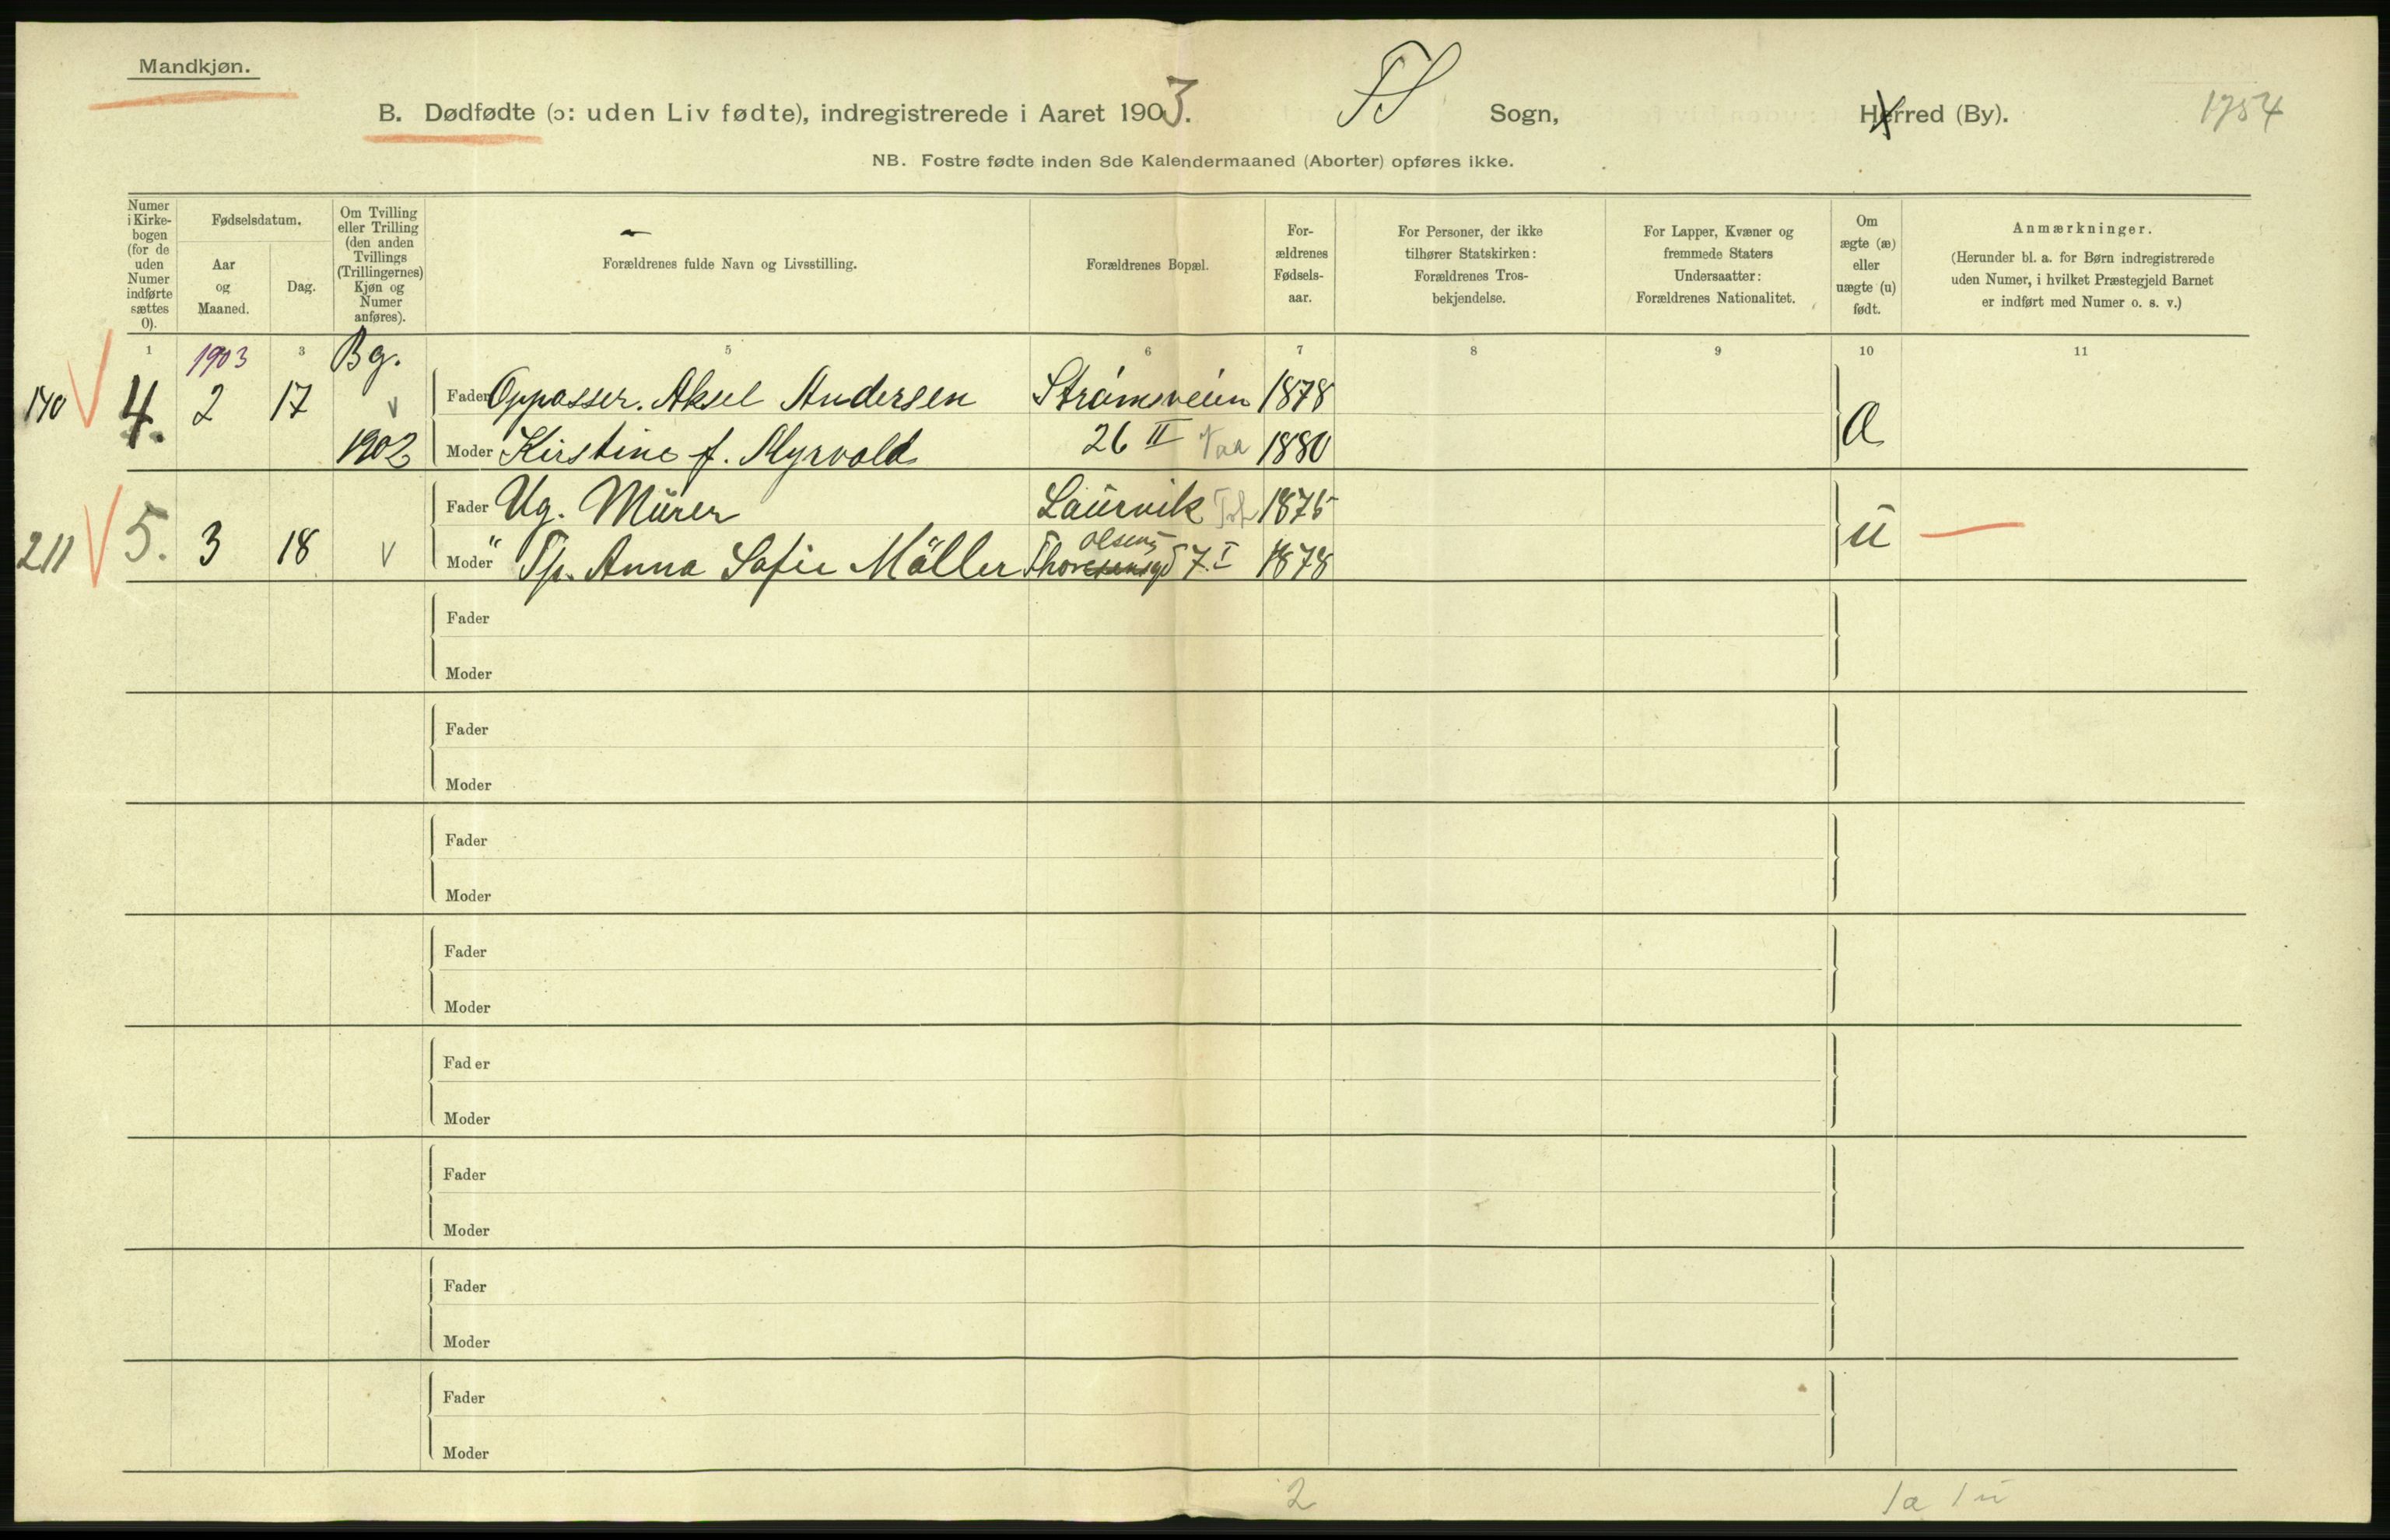 Mandkjøn.
B. Dødfødte (ɔ: uden Liv fødte), indregistrerede i Aaret 1903. Sogn, Herred (By). 1754
NB. Fostre fødte inden 8de Kalendermaaned (Aborter) opføres ikke.
Numer i Kirkebogen (for de uden Numer indførte sættes 0).
Fødselsdatum.
Aar og Maaned.
Dag.
Om Tvilling eller Trilling (den anden Tvillings (Trillingernes) Kjøn og Numer anføres).
Forældrenes fulde Navn og Livsstilling.
Forældrenes Bopæl.
Forældrenes Fødselsaar.
For Personer, der ikke tilhører Statskirken: Forældrenes Trosbekjendelse.
For Lapper, Kvæner og fremmede Staters Undersaatter: Forældrenes Nationalitet.
Om ægte (æ) eller uægte (u) født.
Anmærkninger.
(Herunder bl. a. for Børn indregistrerede uden Numer, i hvilket Præstegjeld Barnet er indført med Numer o. s. v.)
1 1903 3 Bg. 5 6 7 8 9 10 11
140 4. 2 17 Fader Oppasser. Aksel Andersen Strømsveien 1878
1902 Moder Kirstine f. Myrvold 26 II 1880 a
Fader Ug. Murer Laurvik 1875
211 5. 3 18 Moder " Tp. Anna Sofie Møller Thoresensgd 7 I 1878 u
Olsens
Fader
Moder
Fader
Moder
Fader
Moder
Fader
Moder
Fader
Moder
Fader
Moder
Fader
Moder
Fader
Moder
2 1a 1u